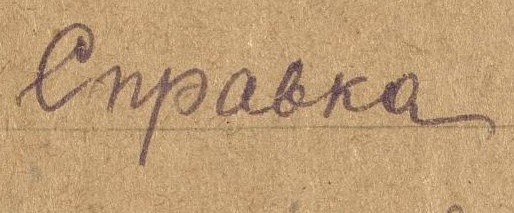 Справка